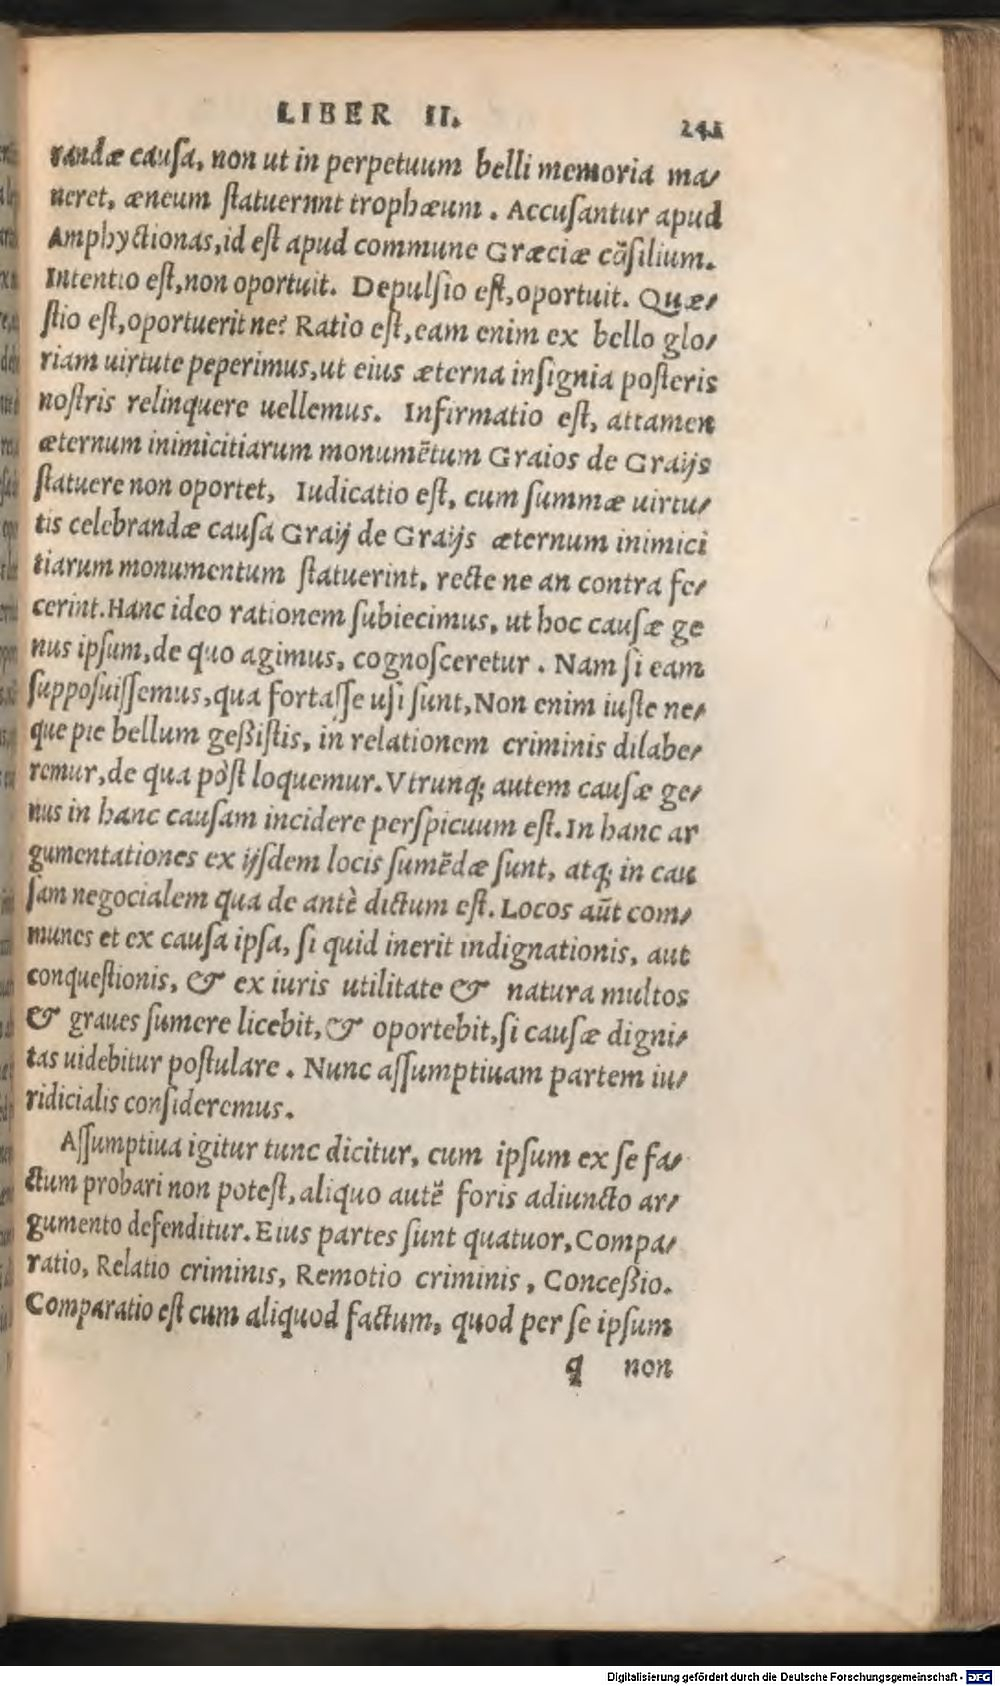 LIBER II. 241
randæ cauſa, non ut in perpetuum belli memoria ma⸗
neret, æneum ſtatuernnt trophæum. Accuſantur apud
Amphyctionas, id eſt apud commune Græciæ cõſilium.
Intentio eſt, non oportuit. Depulſio eſt, oportuit. Quæ⸗
ſtio eſt, oportuerit ne? Ratio eſt, eam enim ex bello glo⸗
riam uirtute peperimus, ut eius æterna inſignia poſteris
noſtris relinquere uellemus. Infirmatio eſt, attamen
æternum inimicitiarum monumẽtum Graios de Graijs
ſtatuere non oportet, Iudicatio eſt, cum ſummæ uirtu⸗
tis celebrandæ cauſa Graij de Graijs æternum inimici
tiarum monumentum ſtatuerint, recte ne an contra fe⸗
cerint. Hanc ideo rationem ſubiecimus, ut hoc cauſæ ge
nus ipſum, de quo agimus, cognoſceretur. Nam ſi eam
ſuppoſuiſſemus, qua fortaſſe uſi ſunt, Non enim iuſte ne⸗
que pie bellum geßiſtis, in relationem criminis dilabe⸗
remur, de qua pòſt loquemur. Vtrunq; autem cauſæ ge⸗
nus in hanc cauſam incidere perſpicuum eſt. In hanc ar
gumentationes ex ijſdem locis ſumẽdæ ſunt, atq; in cau
ſam negocialem qua de antè dictum eſt. Locos aũt com⸗
munes et ex cauſa ipſa, ſi quid inerit indignationis, aut
conqueſtionis, & ex iuris utilitate & natura multos
& graues ſumere licebit, & oportebit, ſi cauſæ digni⸗
tas uidebitur poſtulare. Nunc aſſumptiuam partem iu⸗
ridicialis conſideremus.
Aſſumptiua igitur tunc dicitur, cum ipſum ex ſe fa⸗
ctum probari non poteſt, aliquo autẽ foris adiuncto ar⸗
gumento defenditur. Eius partes ſunt quatuor, Compa⸗
ratio, Relatio criminis, Remotio criminis, Conceßio.
Comparatio eſt cum aliquod factum, quod per ſe ipſum
q non
Digitalisierung gefördert durch die Deutsche Forschungsgemeinschaft - DFG